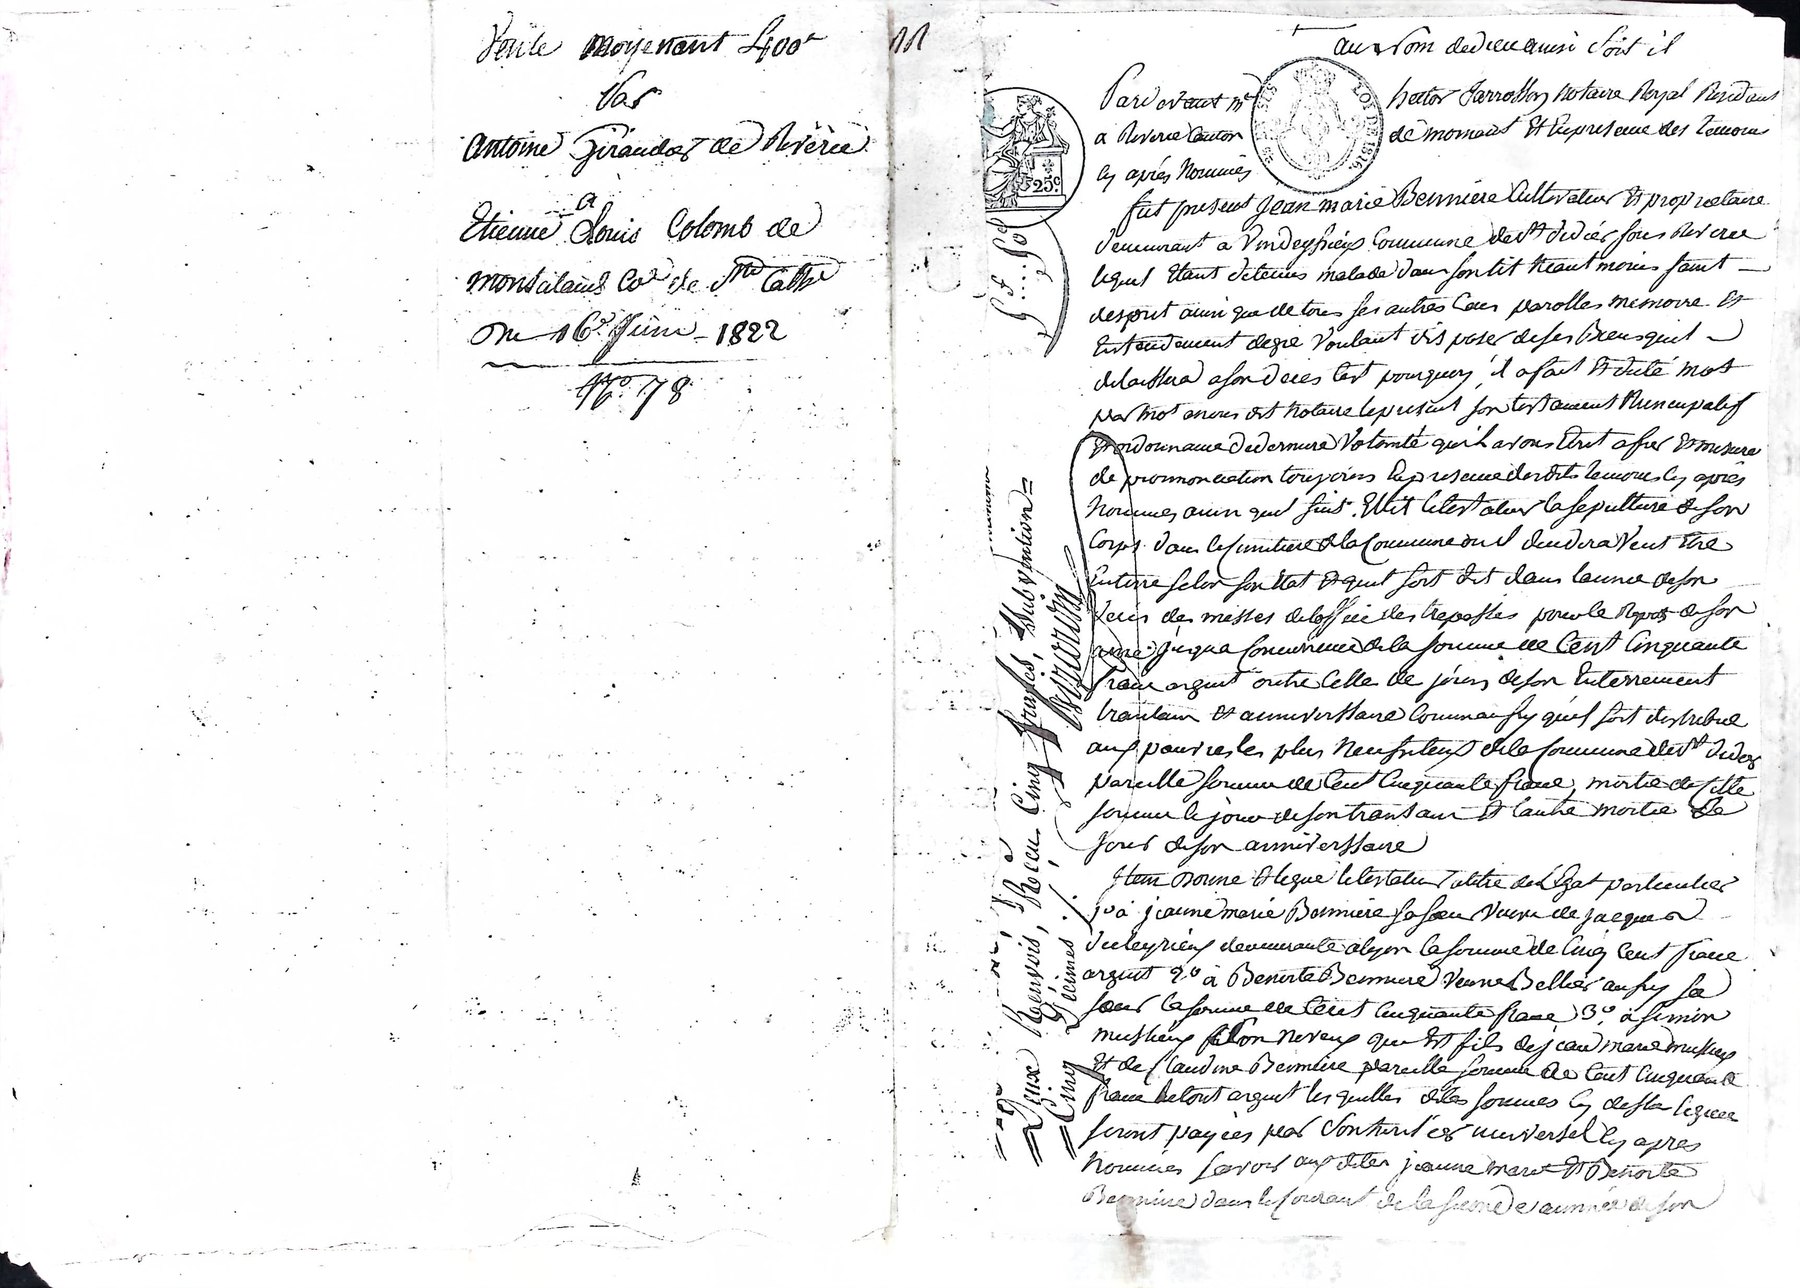 Vente moyenant 400f
Par
Antoine Giraudet de Riverie
a
Etienne Louis Colomb de
de Ste Cathe
Du 16e Juin 1822
No. 78
au Nom de dieu ainsi Soit il
Pardevant me hector Jarrosson Notaire Royal Residant
a Riverie Canton de mornant Et En presence des temoins
Cy après Nommés
fut present Jean marie Bernniere Cultivateur Et proprietaire
demeurant a Commune de St didier sous Riverie
lequel Etant detenus malade dans son lit Neant moins saint
desprit ainsi que de tous ses autres Cens parolles memoire Et
Entendement de gré Voulant dis poser de ses Biens quil
delaissera a son deces C'est pourquoy il a fait Et dicté mot
par mot a nous dit Notaire le present son testament Nuncupatif
Et ordonnance de derniere Volonté qu'il avons Ecrit a fur Et mesure
de prononciation toujours En presence desdits temoins Cy après
Nommés ainsi quil suit. Ellit le testateur la sepulture de son
Corps dans le Cimitiere de la Commune ou il decedera Veut Etre
Enterré selon son Etat Et quil soit dit dans l'année de son
deces des messes de loffice des trepassés pour le Repos de son
ame jusqua Concurrence de la somme de Cent Cinquante
franc argent outre Celle de jours de son Enterrement
trantain Et anniverssaire Comm'aussy quil soit distribué
aux pauvres les plus Necessiteux de la Commune de St didier
pareille somme de Cent Cinquante franc, moitie de cette
somme le jour de son trantain Et l'autre moitie le
jour de son anniverssaire
Item Donne Et legue le testateur a titre de Légat particulier
1o à jeanne marie Bernniere sa sœur Veuve de jacque
demeurante a lyon la somme de Cinq Cent franc
argent 2o à Benoite Bernniere Veuve Bellier aussy sa
sœur la somme de Cent Cinquante franc 3o. à Simon
son Neveux qui Est fils de jean marie
Et de Claudine Bernniere pareille somme de Cent Cinquante
franc le tout argent les quelles dites sommes Cy dessus leguées
seront payées par Son heritier universel Cy apres
Nommés savoir aux dites jeanne marie Et Benoite
Bernniere dans le Courant de la seconde année de son
25c.
LOI DE 1816
Deux Renvois, Reçu Cinq francs, Subvention =
= Cinq Décimes